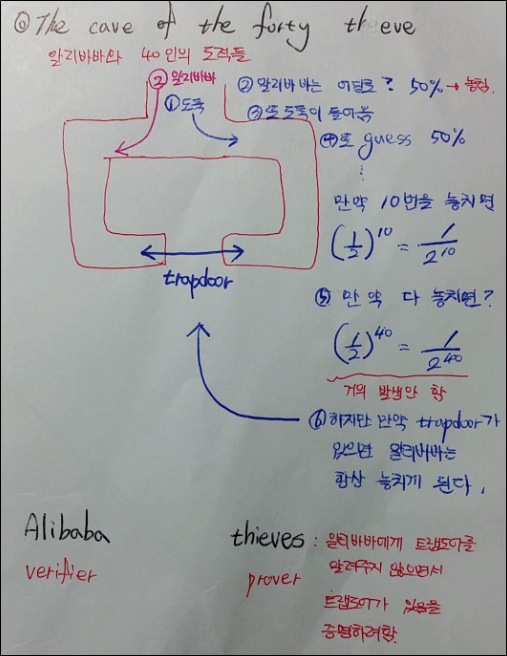 ◎ The cave of the forty theive
알리바바와 40인의 도적들
② 알리바바
① 도둑
② 알리바바는 어딜로? 50% → 놓침.
③ 또 도둑이 들어옴
④ 또 guess 50%
⋮
만약 10번을 놓치면
(1/2)^10 = 1/2^10
trapdoor
⑤ 만약 다 놓치면?
(1/2)^40 = 1/2^40
거의 발생 안 함
⑥ 하지만 만약 trapdoor가
있으면 알리바바는
항상 놓치게 된다.
Alibaba
verifier
thieves : 알리바바에게 트랩도어를
prover
알려주지 않으면서
트랩도어가 있음을
증명하려함.